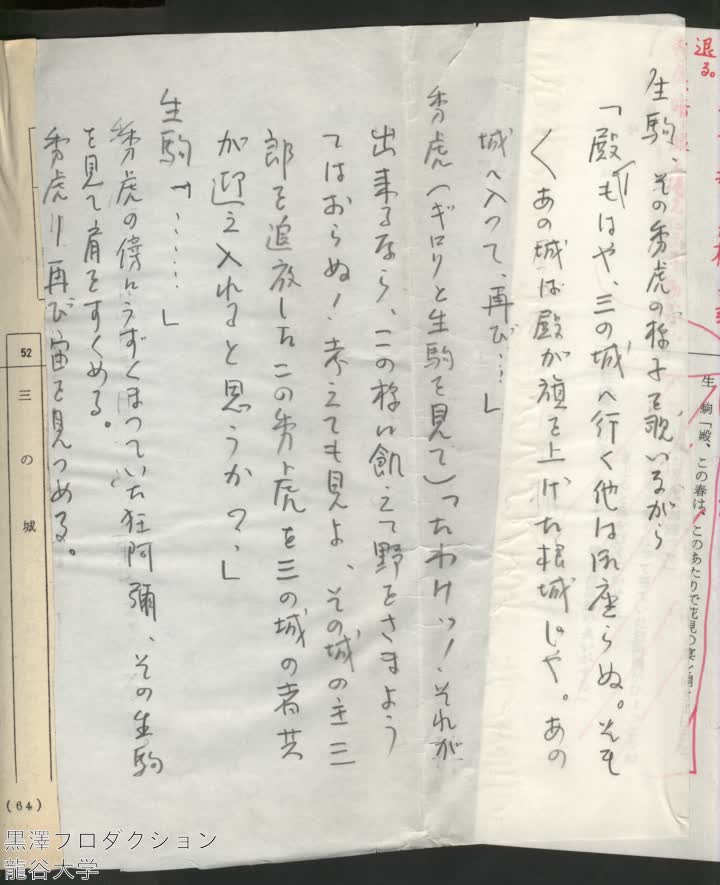 退る。
生駒「殿、この春は、このあたりで花見の宴を
生駒、その秀虎の様子を覗いながら
「殿、もはや、三の城へ行く他は御座らぬ。そも
〱あの城は殿が旗を上げた根城じや。あの
城へ入つて、再び…」
秀虎(ギロリと生駒を見て)「たわけッ!それが
出来るなら、この様に飢えて野をさまよう
てはおらぬ!考えても見よ、その城の主三
郎を追放したこの秀虎を三の城の者共
が迎え入れると思うか?」
生駒「……」
秀虎の傍にうずくまつていた狂阿彌、その生駒
を見て肩をすくめる。
秀虎は再び宙を見つめる。
52
三の城
(64)
黒澤プロダクション
龍谷大学